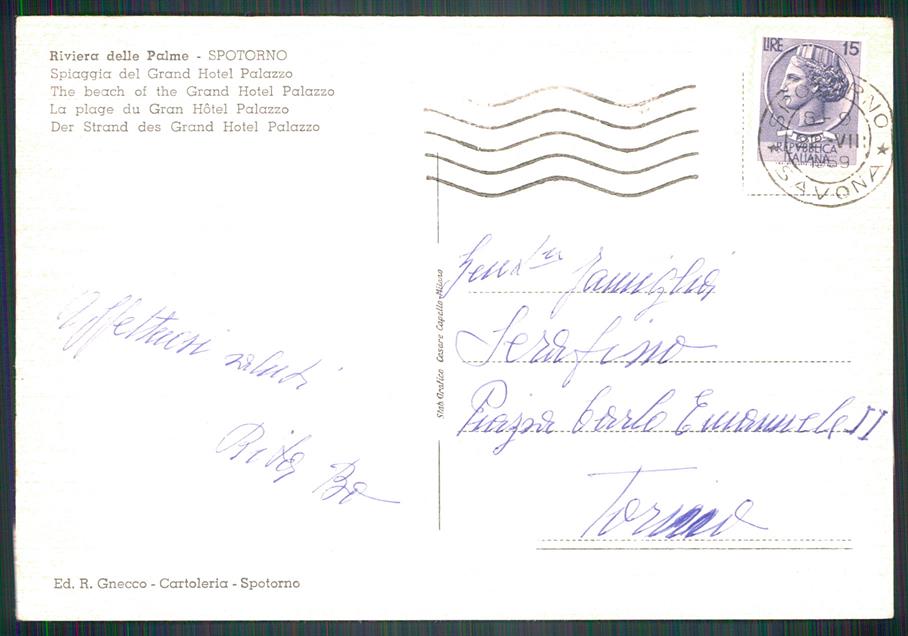 Riviera delle Palme - SPOTORNO
Spiaggia del Grand Hotel Palazzo
The beach of the Grand Hotel Palazzo
La plage du Gran Hôtel Palazzo
Der Strand des Grand Hotel Palazzo
LIRE 15
REPVBBLICA
ITALIANA
SPOTORNO
18-9
VII
1969
★ SAVONA ★
Stab Grafico Cesare Capello-Milano
Famiglia
Serafino
Piazza Carlo Emanuele II
Torino
Affettuosi
saluti
Rita Bo
Ed. R. Gnecco - Cartoleria - Spotorno